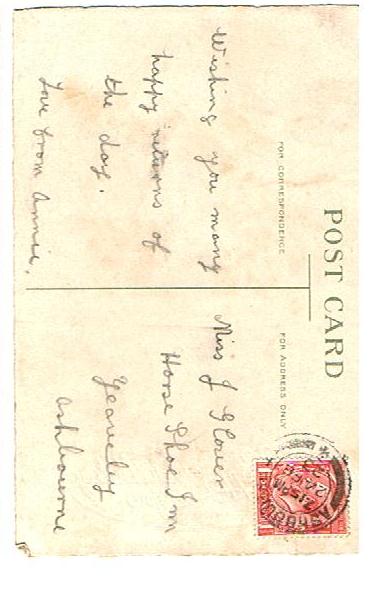 POST CARD
FOR CORRESPONDENCE
Wishing you many
happy returns of
the day.
Love from Annie.
FOR ADDRESS ONLY
Miss J Glover
Horse Shoe Inn
Yeaveley
Ashbourne
ASHBOURNE